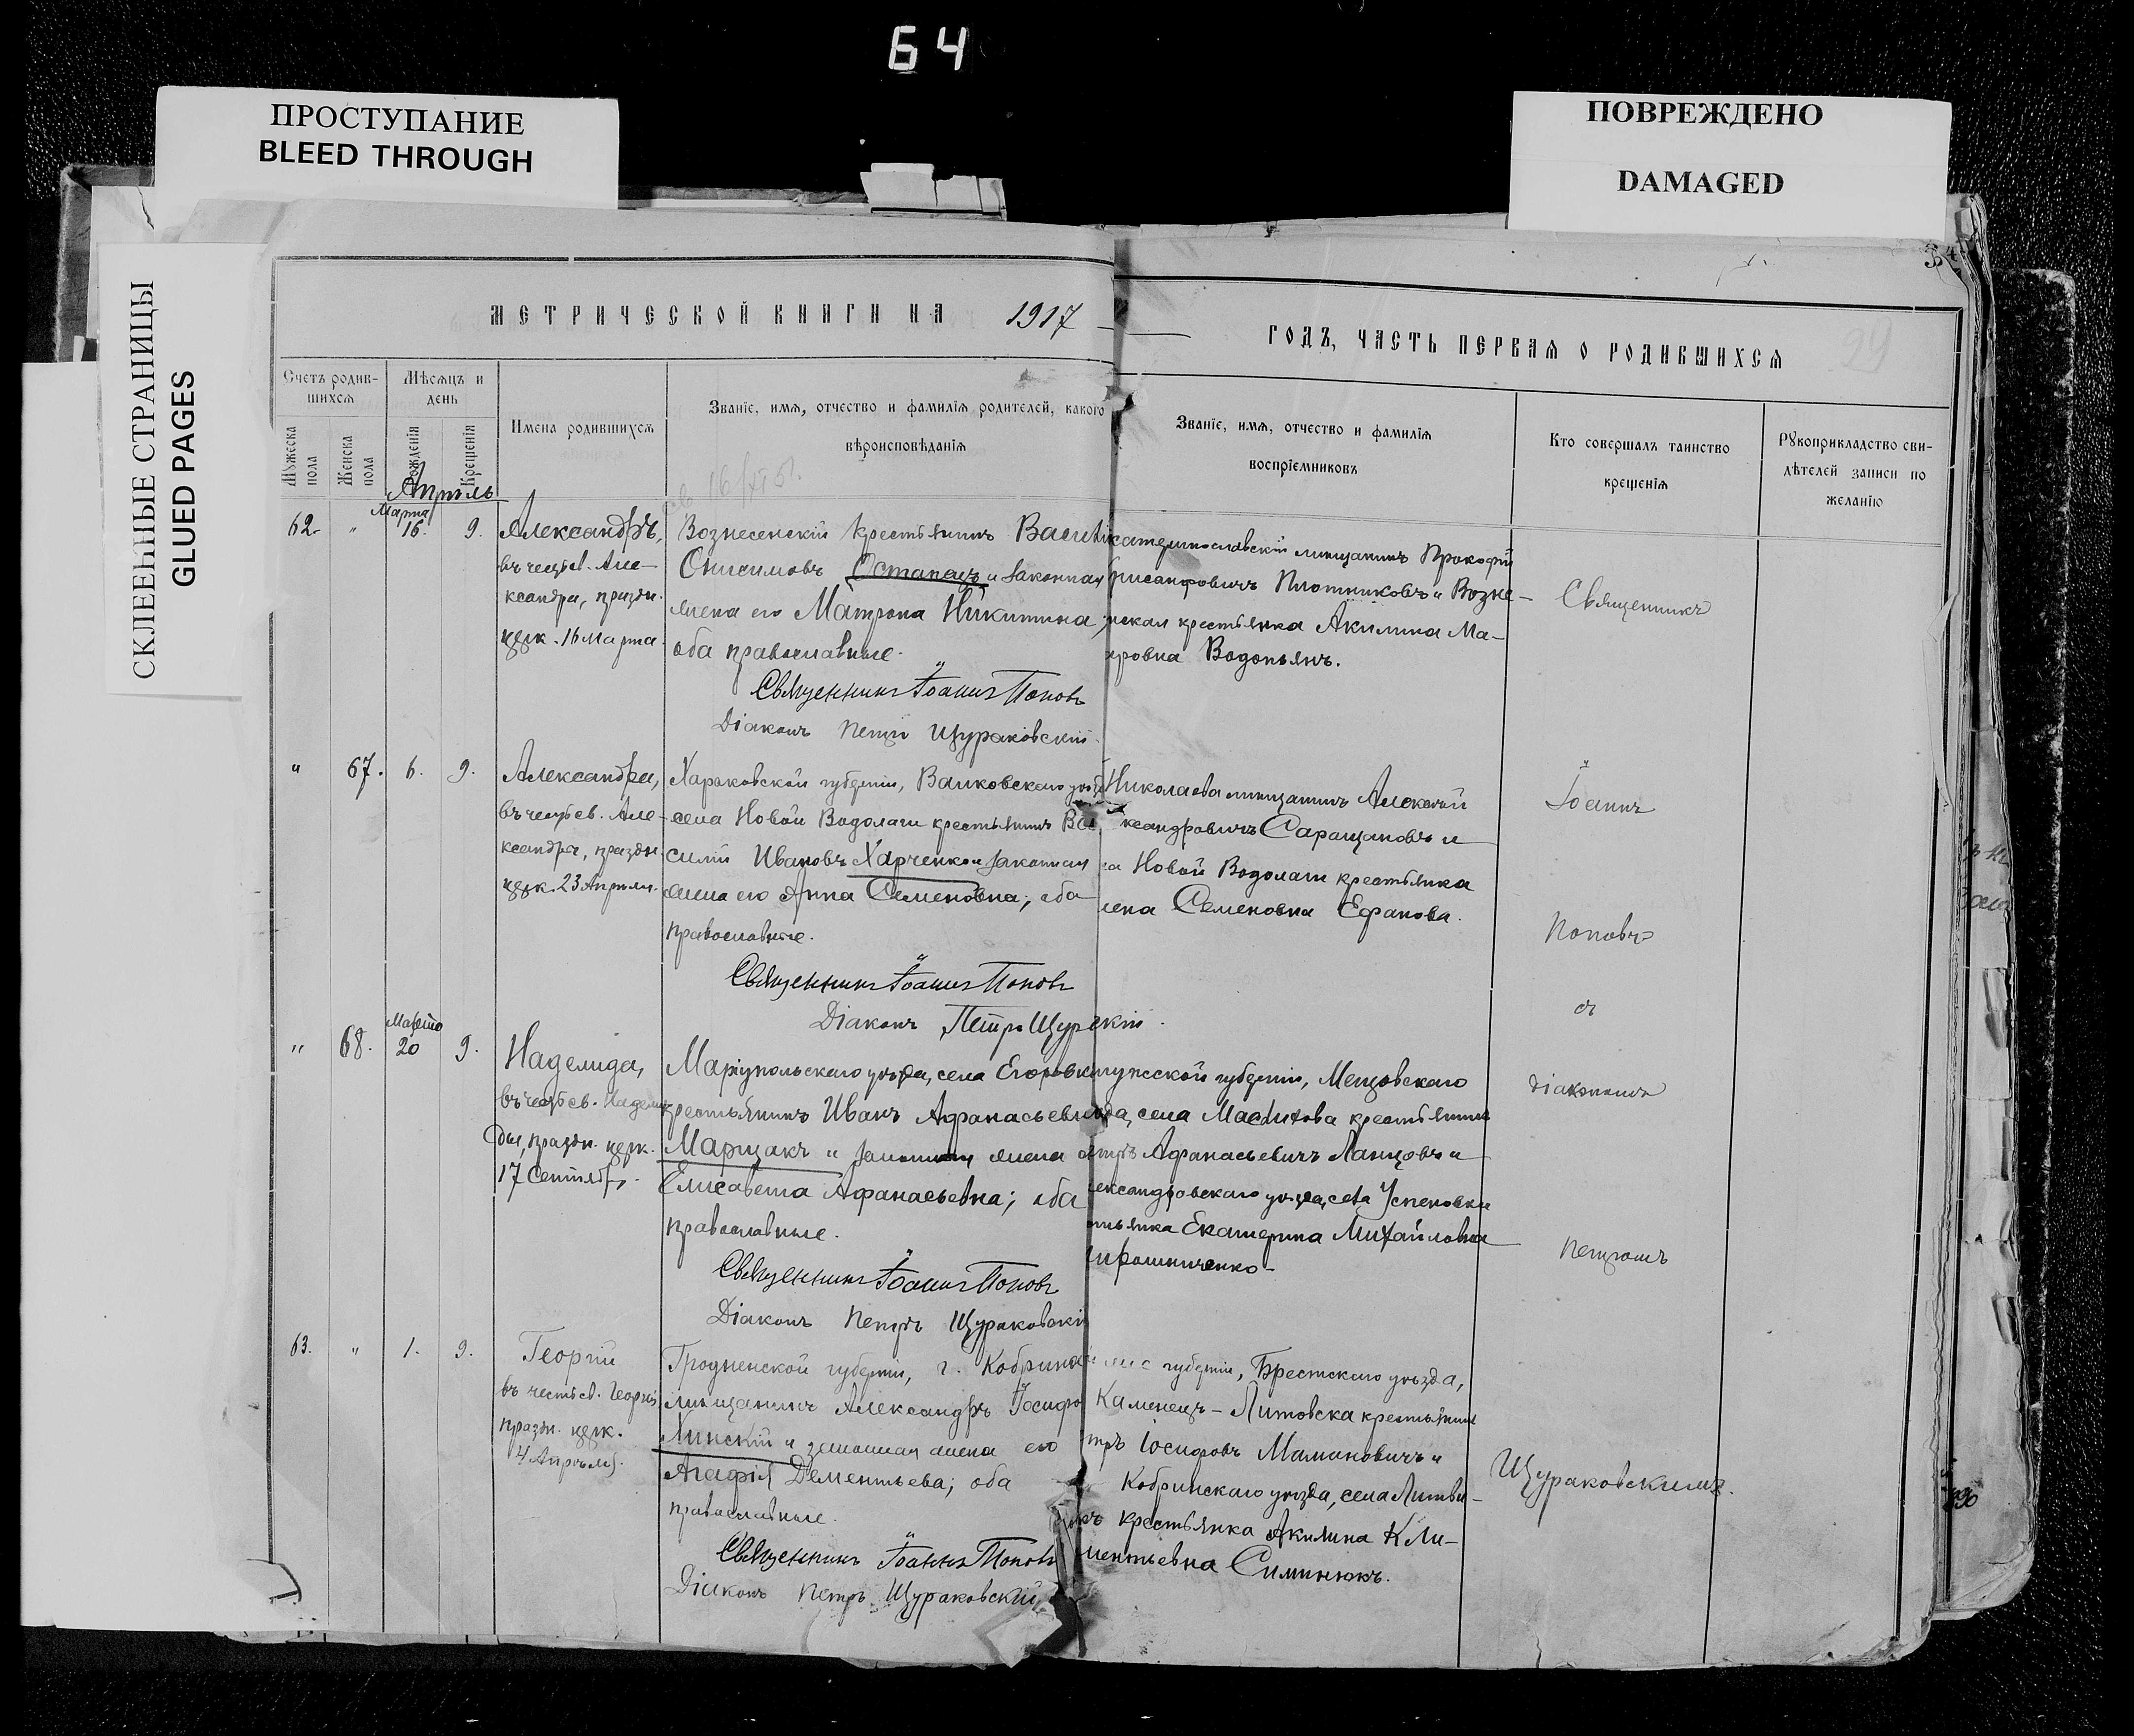 64
ПРОСТУПАНИЕ
BLEED THROUGH
ПОВРЕЖДЕНО
DAMAGED
СКЛЕЕННЫЕ СТРАНИЦЫ
GLUED PAGES
МЕТРИЧЕСКОЙ КНИГИ НА 1917
ГОДЪ, ЧАСТЬ ПЕРВАЯ О РОДИВШИХСЯ
29
Счетъ родив-
шихся
Мужеска
пола
Женска
пола
Мѣсяцъ и
день
Рожденія
Крещенія
Имена родившихся
Званіе, имя, отчество и фамилія родителей, какого
вѣроисповѣданія
Званіе, имя, отчество и фамилія
воспріемниковъ
Кто совершалъ таинство
крещенія
Рукоприкладство сви-
дѣтелей записи по
желанію
Апрѣль
62. " Марта 16. 9.
Александръ,
въ честь св. Але-
ксандра, праздн.
церк. 16 Марта.
Вознесенскій крестьянинъ Васи
Онисимовъ Остапецъ и законная
жена его Матрона Никитина;
оба православные.
Священникъ Іоаннъ Поповъ
Діаконъ Петръ Щураковскій.
катеринославскій мѣщанинъ Прокофій
рисанфовичъ Плотниковъ и Возне-
нская крестьянка Акилина Ма-
кровна Водопьянъ.
" 67. 6. 9.
Александра,
въ честь св. Але-
ксандра, праздн.
церк. 23 Апрѣля.
Харьковской губерніи, Валковскаго уѣзда
села Новой Водолаги крестьянинъ Ва
силій Ивановъ Харченко и законная
жена его Анна Семеновна; оба
православные.
Священникъ Іоаннъ Поповъ
Діаконъ Петръ Щурскій.
Николаева мѣщанинъ Алексѣй
ксандровичъ Саращановъ и
ла Новой Водолаги крестьянка
лена Семеновна Ефанова.
" 68. Марта 20 9.
Надежда,
въ честь св. Надеж
ды, праздн. церк.
17 Сентябр.
Маріупольскаго уѣзда, села Егоровки
крестьянинъ Иванъ Афанасьевичъ
Марцакъ и законная жена его
Елисавета Афанасьевна; оба
православные.
Священникъ Іоаннъ Поповъ
Діаконъ Петръ Щураковскій
лужской губерніи, Мещовскаго
да, села крестьянинъ
Афанасьевичъ Ланцовъ и
лександровскаго уѣзда, села Успеновки
стьянка Екатерина Михайловна
ирошниченко.
63. " 1. 9.
Георгій
въ честь св. Георгія
праздн. церк.
4 Апрѣля.
Гродненской губерніи, г. Кобрина
мѣщанинъ Александръ Іосифо
Линскій и законная жена его
Агафія Дементьева; оба
православные.
Священникъ Іоаннъ Поповъ
Діаконъ Петръ Щураковскій
губерніи, Брестскаго уѣзда,
Каменецъ-Литовска крестьянинъ
тръ Іосифовъ Мамановичъ и
Кобринскаго уѣзда, села Литви-
къ крестьянка Акилина Кли-
ментьевна Симинюкъ.
Священникъ
Іоаннъ
Поповъ
съ
діакономъ
Петромъ
Щураковскимъ.